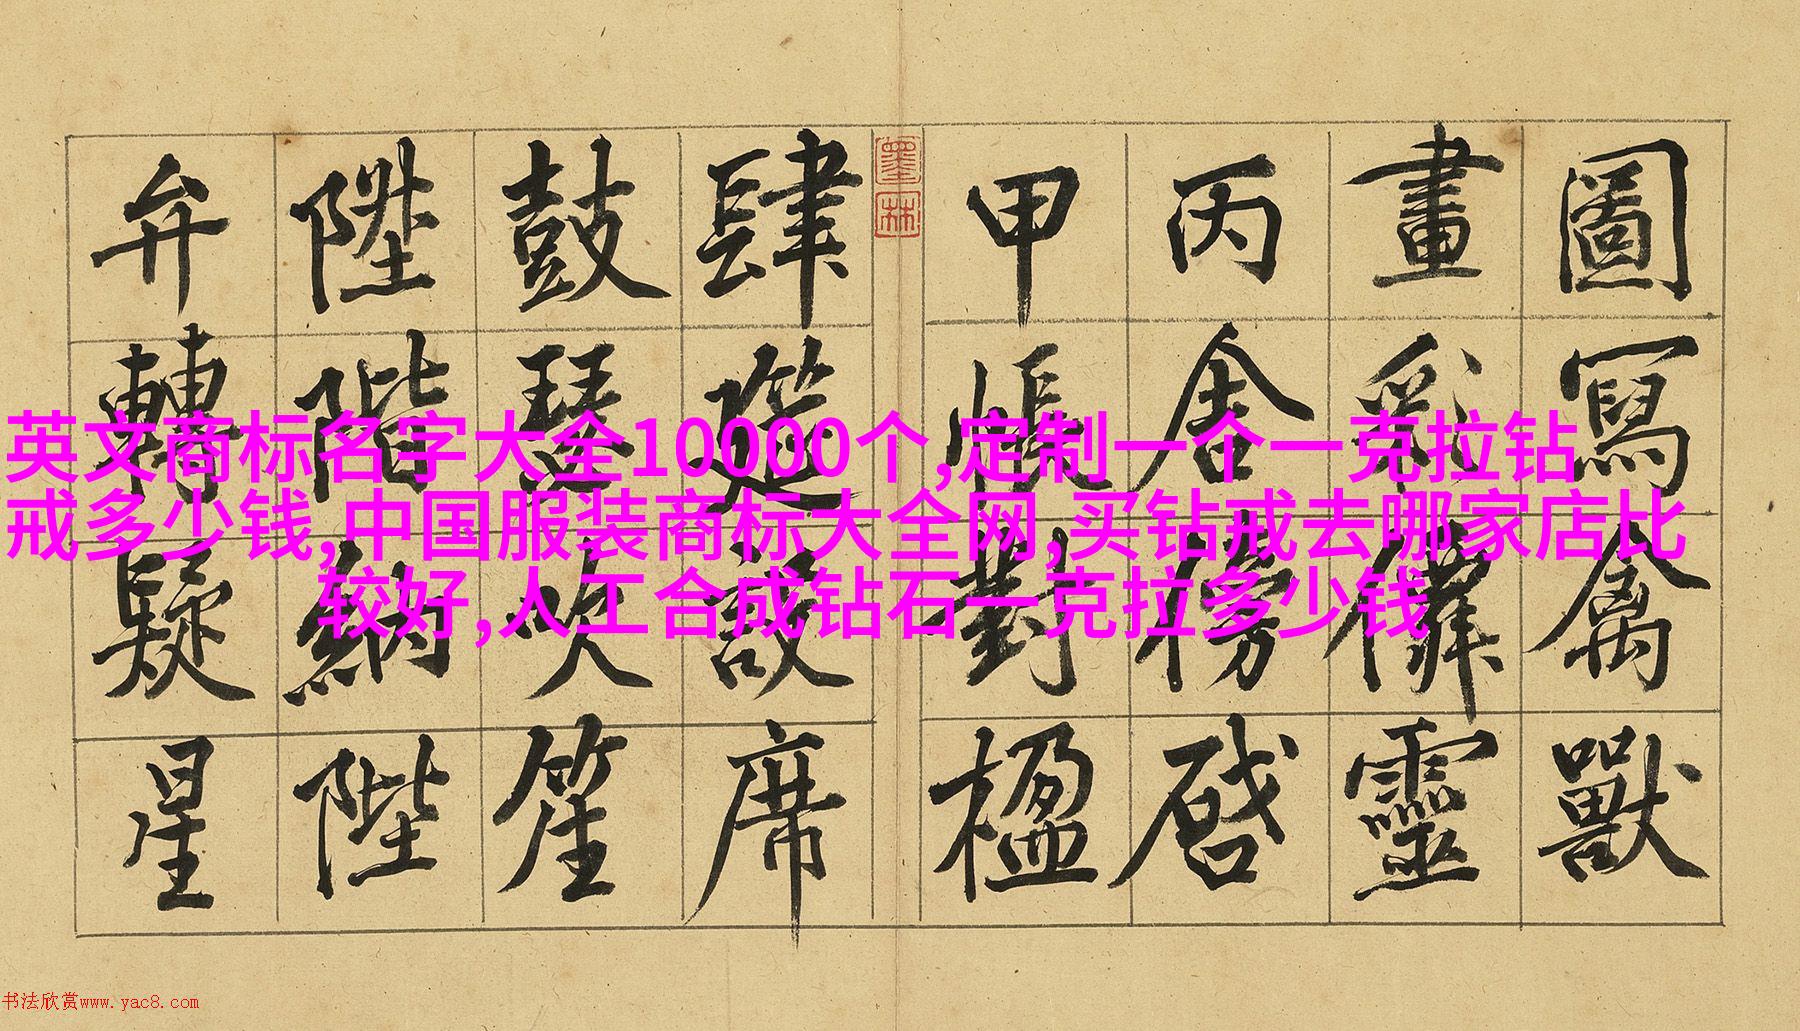 圖寫禽獸
畫彩僊靈
丙舍傍啓
甲帳對楹
墨林
肆筵設席
鼓瑟吹笙
陞階納陛
弁轉疑星
英文商标名字大全10000个,定制一个一克拉钻
戒多少钱,中国服装商标大全网,买钻戒去哪家店比
较好,人工合成钻石一克拉多少钱
书法欣赏www.yac8.com